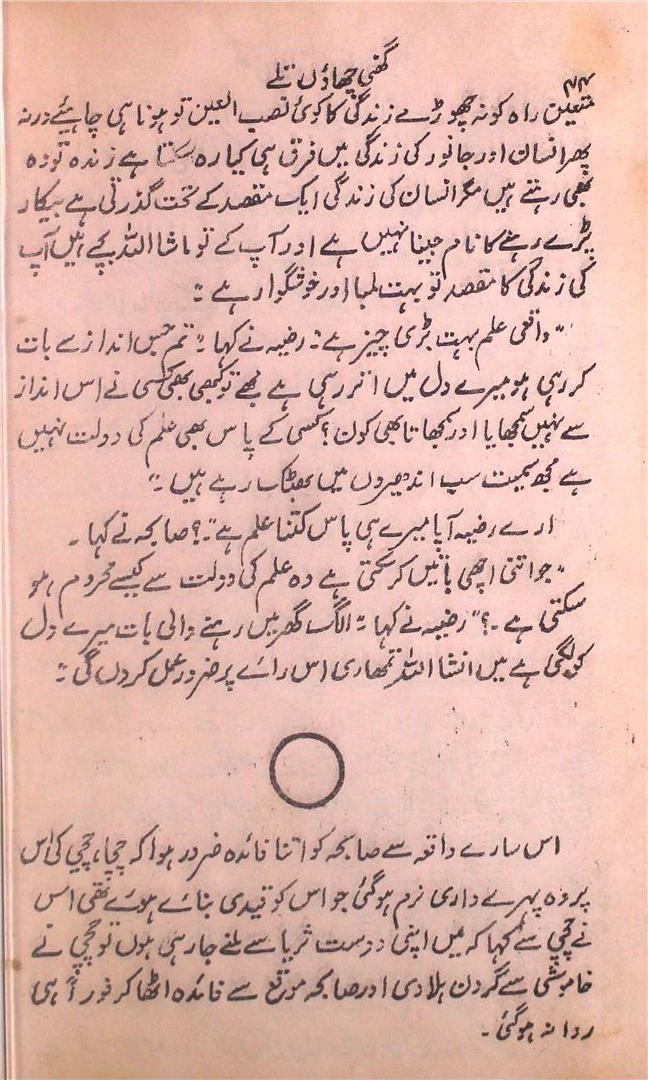 گھنی چھاؤں تلے
۴۴
متعین راہ کو نہ چھوڑے زندگی کا کوئی نصب العین تو ہونا ہی چاہیئے ورنہ
پھر انسان اور جانور کی زندگی میں فرق ہی کیا رہ سکتا ہے زندہ تو وہ
بھی رہتے ہیں مگر انسان کی زندگی ایک مقصد کے تحت گذرتی ہے بیکار
پڑے رہنے کا نام جینا نہیں ہے اور آپ کے تو ماشا اللہ بچے ہیں آپ
کی زندگی کا مقصد تو بہت لمبا اور خوشگوار ہے ۔"
"واقعی علم بہت بڑی چیز ہے" رضیہ نے کہا ۔" تم جس انداز سے بات
کر رہی ہو میرے دل میں اتر رہی ہے مجھے تو کبھی بھی کسی نے اس انداز
سے نہیں سمجھایا اور سمجھاتا بھی کون؟ کسی کے پاس بھی علم کی دولت نہیں
ہے مجھ سمیت سب اندھیروں میں بھٹک رہے ہیں ۔"
ارے رضیہ آپا میرے ہی پاس کتنا علم ہے"۔؟ صابحہ نے کہا ۔
"جو اتنی اچھی باتیں کر سکتی ہے وہ علم کی دولت سے کیسے محروم ہو
سکتی ہے ۔؟" رضیہ نے کہا " الگ گھر میں رہنے والی بات میرے دل
کو لگی ہے میں انشا اللہ تمھاری اس رائے پر ضرور عمل کروں گی ۔"
اس سارے واقعہ سے صابحہ کو اتنا فائدہ ضرور ہوا کہ چچا، چچی کی اس
پر وہ پہرے داری نرم ہو گئی جو اس کو قیدی بنائے ہوئے تھی اس
نے چچی سے کہا کہ میں اپنی دوست ثریا سے ملنے جا رہی ہوں تو چچی نے
خاموشی سے گردن ہلا دی اور صابحہ موقع سے فائدہ اٹھا کر فوراً ہی
روانہ ہو گئی ۔